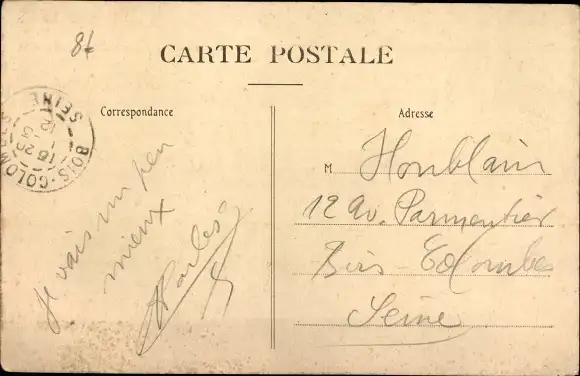 8f
CARTE POSTALE
Correspondance
Adresse
BOIS-COLOMBES
SEINE
Je vais un peu
mieux
M Honblain
12 Av. Parmentier
Bois-Colombes
Seine